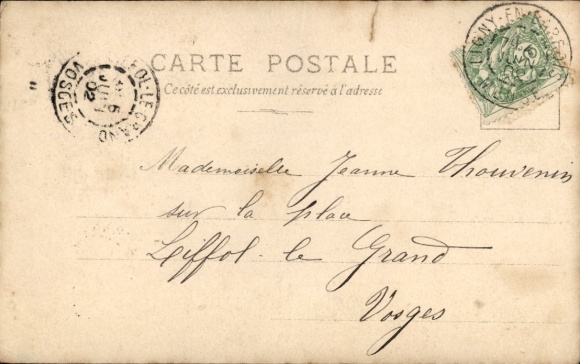 CARTE POSTALE
Ce côté est exclusivement réservé à l'adresse
LIGNY-EN-BARROIS
LIFFOL-LE-GRAND
5
JUIN
02
VOSGES
Mademoiselle Jeanne Thouvenin
sur la place
Liffol-le Grand
Vosges